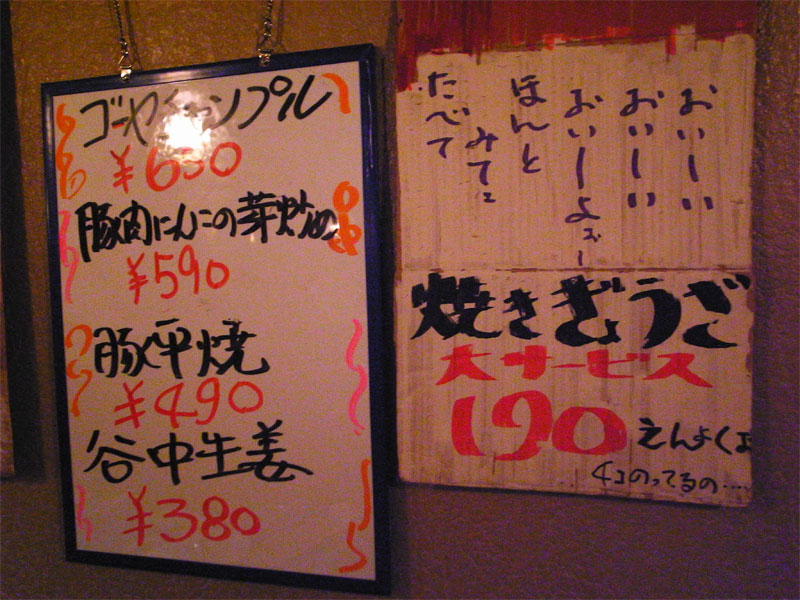 ゴーヤチャンプル
豚肉にんこの芽炒め
¥590
豚平焼
¥490
谷中生姜
¥380
おいしい
おいしい
おいしーよぉー
ほんと
みてネ
たべて
焼きぎょうざ
大サービス
190えん
4コのってるの....